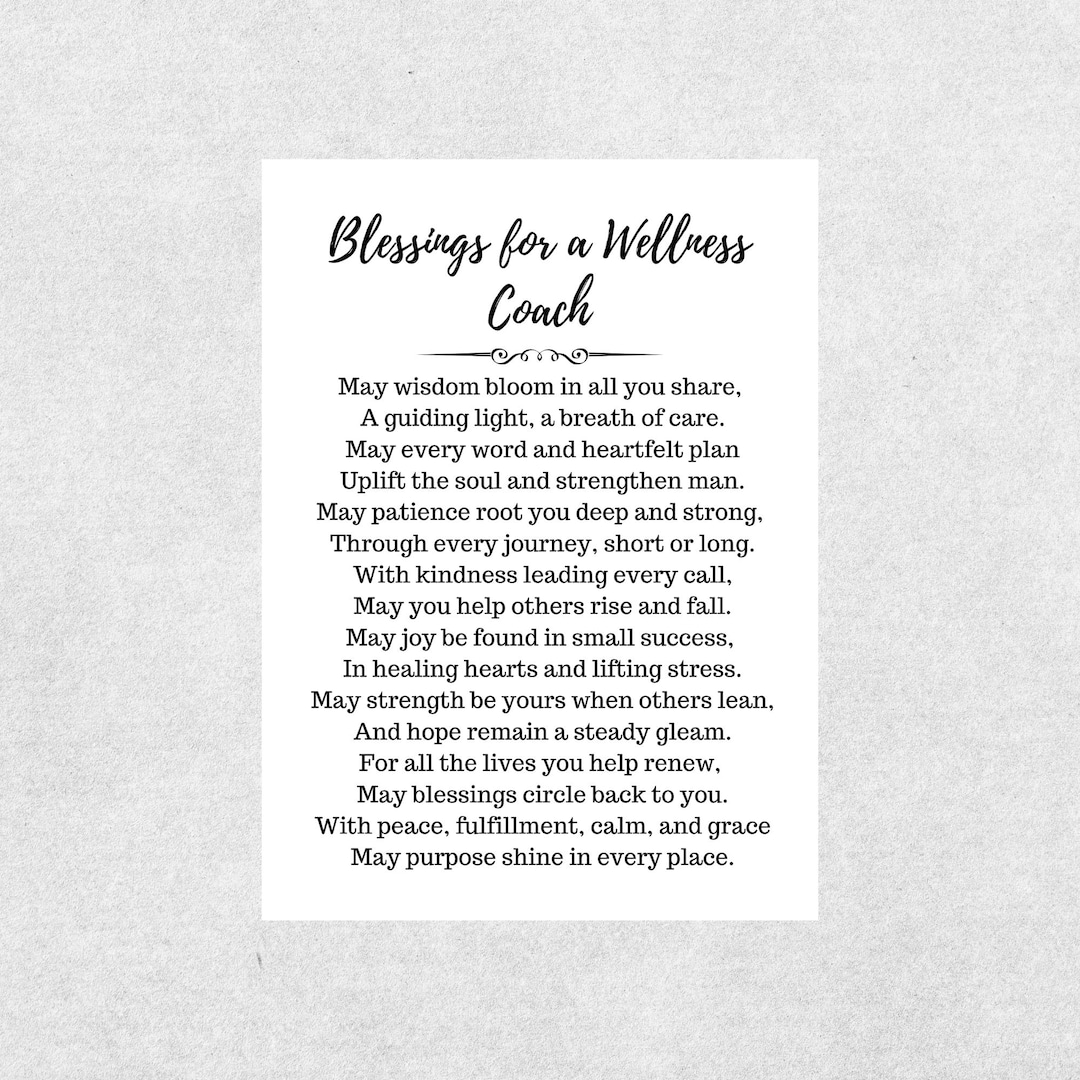 Blessings for a Wellness
Coach
May wisdom bloom in all you share,
A guiding light, a breath of care.
May every word and heartfelt plan
Uplift the soul and strengthen man.
May patience root you deep and strong,
Through every journey, short or long.
With kindness leading every call,
May you help others rise and fall.
May joy be found in small success,
In healing hearts and lifting stress.
May strength be yours when others lean,
And hope remain a steady gleam.
For all the lives you help renew,
May blessings circle back to you.
With peace, fulfillment, calm, and grace
May purpose shine in every place.